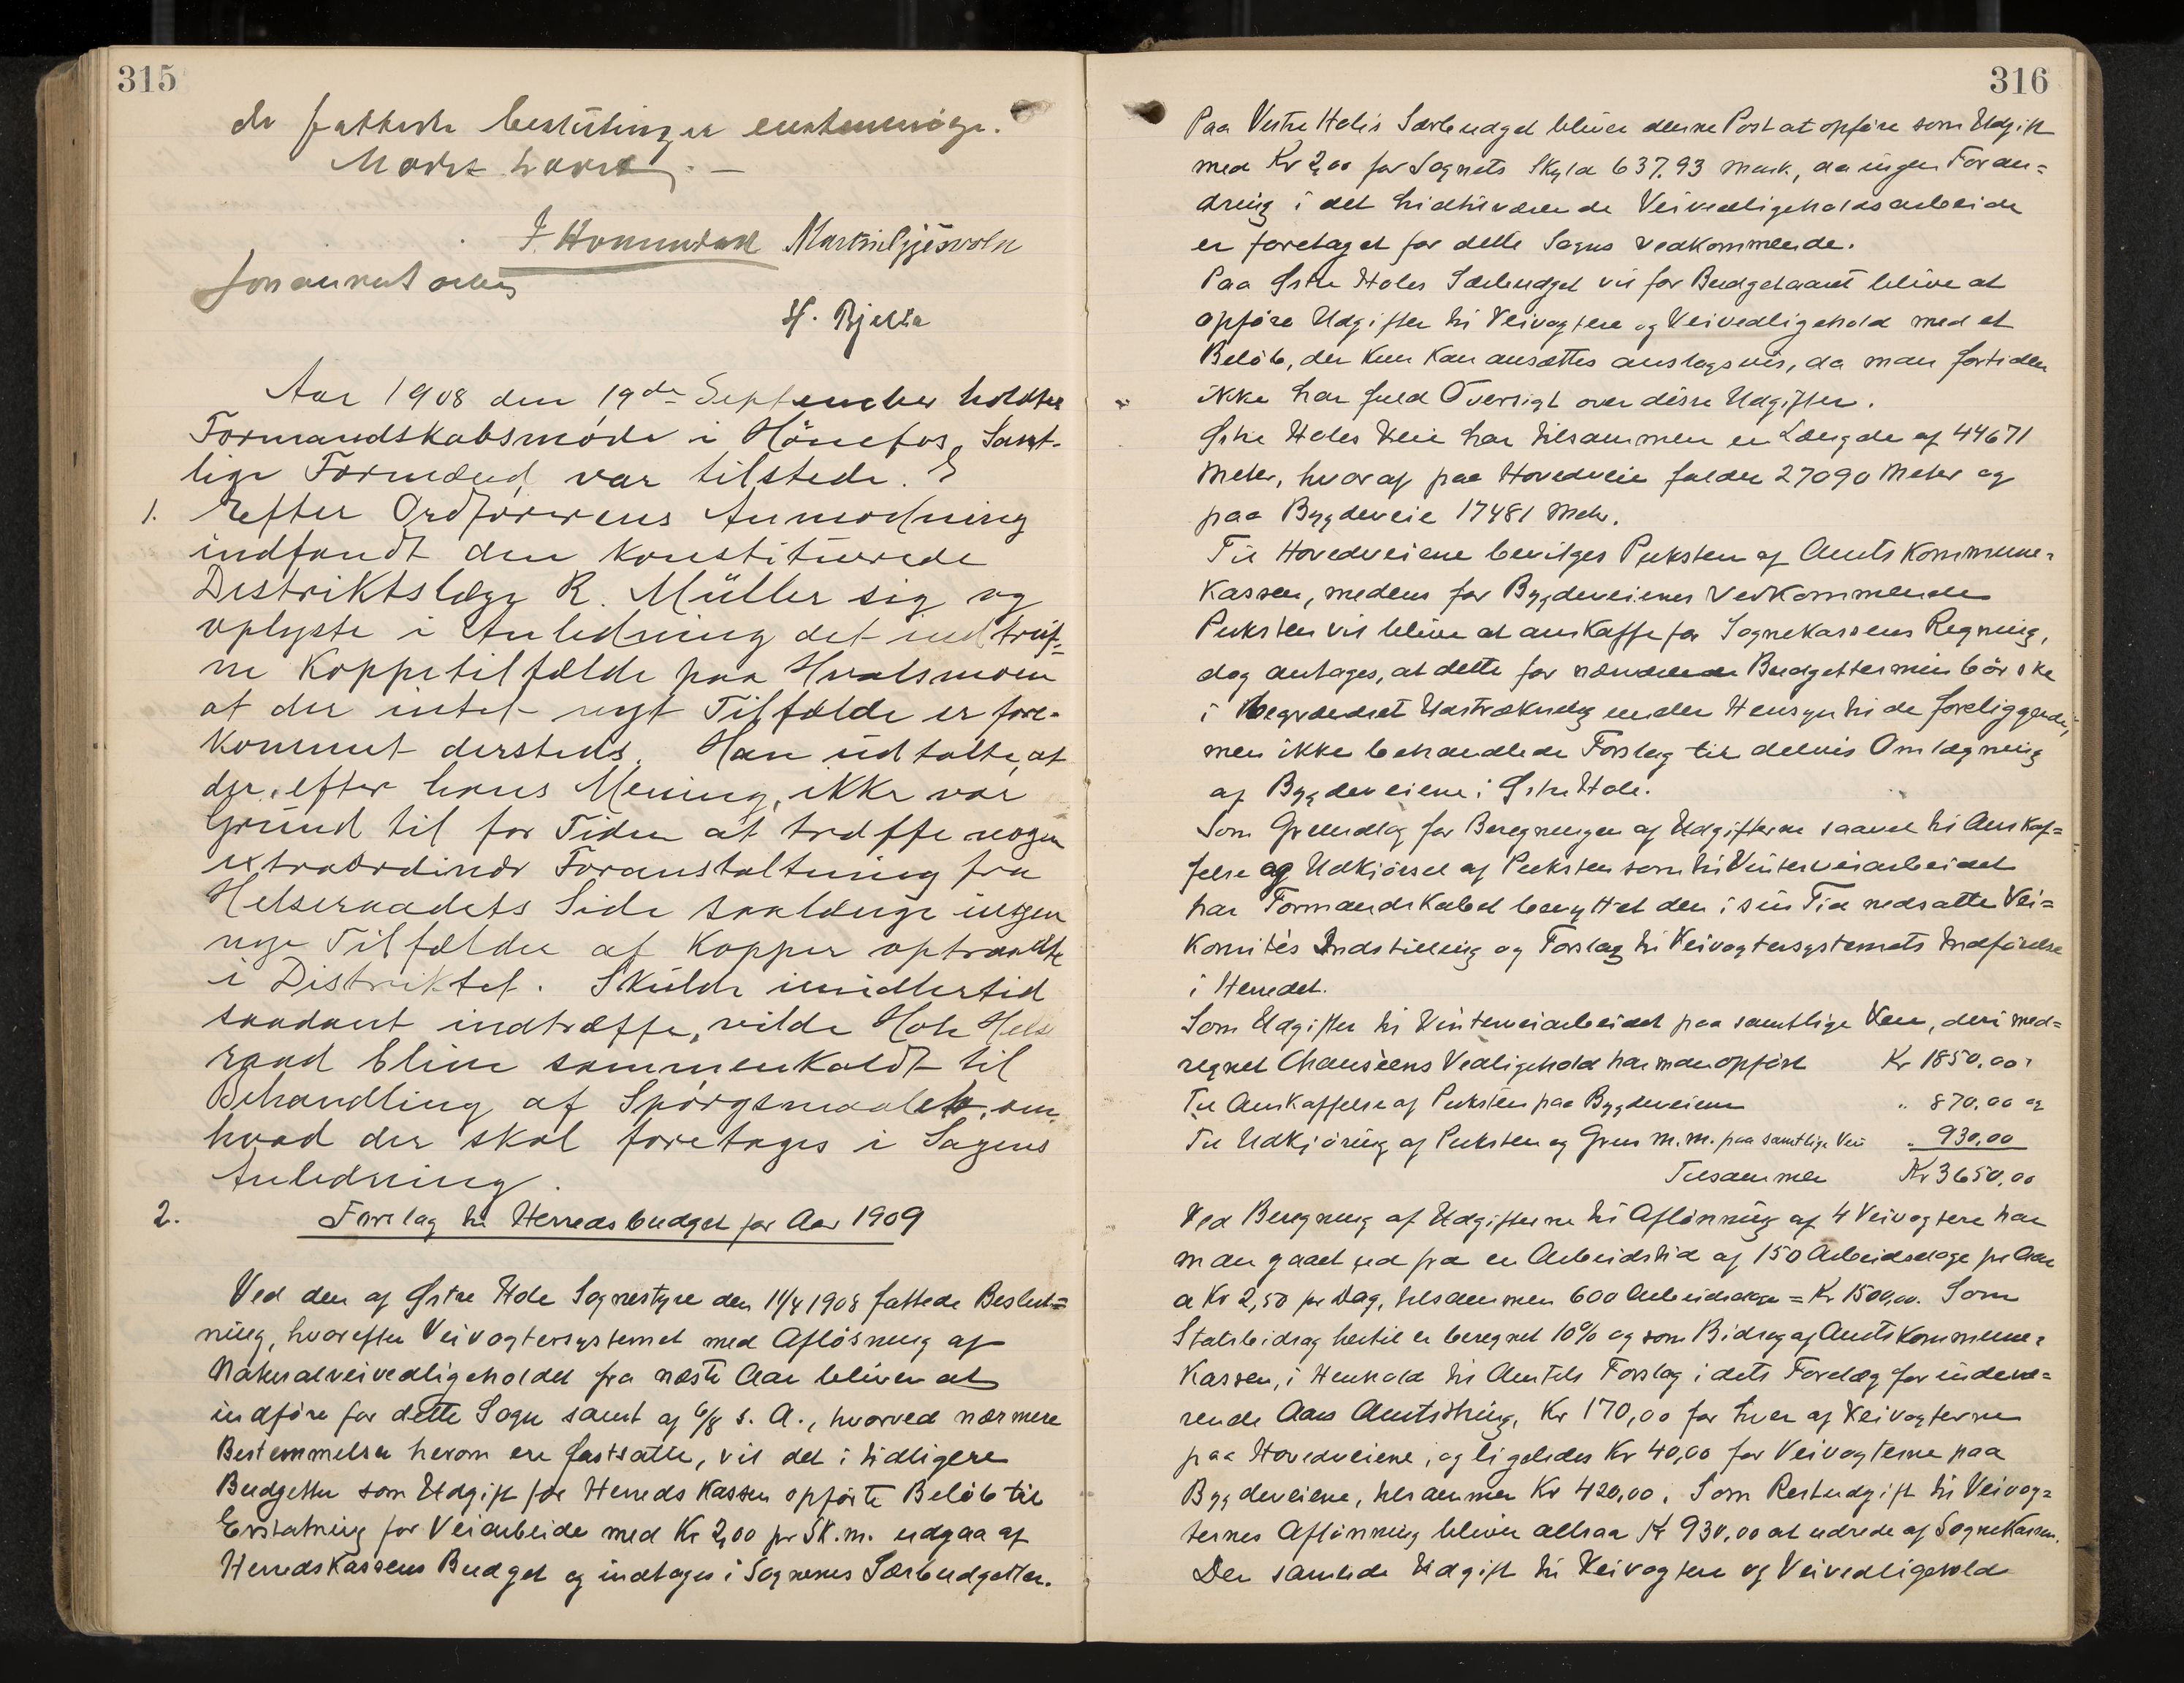 315
de fattede beslutninger enstemmige.
Mødet hævet. —
F. Hommedal Martin Gjesvold
H. Bjella
Aar 1908 den 19de September holdtes
Formandskabsmøde i Hönefos, Samt-
lige Formænd var tilstede.
1. Efter Ordførerens Anmodning
indfandt den konstituerede
Distriktslæge R. Müller sig og
oplyste i Anledning det indtruf=
ne Koppetilfælde paa Hvalsmoen
at der intet nyt Tilfælde er fore-
kommet dersteds. Han udtalte, at
der, efter hans Mening, ikke var
Grund til for Tiden at træffe nogen
extraordinær Foranstaltning fra
Helseraadets Side saalænge ingen
nye Tilfælder af Kopper optraadte
i Distriktet. Skulde imidlertid
saadant indtræffe, vilde Hole Helse
raad blive sammenkaldt til
Behandling af Spørgsmaalet, om
hvad der skal foretages i Sagens
Anledning.
2. Forslag til Herredsbudget for Aar 1909
Ved den af Østre Hole Sognestyre den 11/4 1908 fattede Beslut=
ning, hvorefter Veivogtersystemet med Afløsning af
Naturalveivedligeholdet fra næste Aar bliver at
indføre for dette Sogn samt af 6/8 s. A., hvorved nærmere
Bestemmelser herom ere fastsatte, vil det i tidligere
Budgetter som Udgift for Herredskassen opførte Beløb til
Erstatning for Veiarbeide med Kr 2,00 pr Sk.m. udgaa af
Herredskassens Budget og indtages i Sognenes Særbudgetter.
316
Paa Vestre Holes Særbudget bliver denne Post at opføre som Udgift
med Kr 2,00 for Sognets Skyld 637.93 Mark, da ingen Foran=
dring i det hidtilværende Veivedligeholdsarbeide
er foretaget for dette Sogns vedkommende.
Paa Østre Holes Særbudget vil for Budgetaaret blive at
opføre Udgifter til Veivogtere og Veivedligehold med et
Beløb, der kun kan ansættes anslagsvis, da man fortiden
ikke har fuld Oversigt over disse Udgifter.
Østre Holes Veie har tilsammen en Længde af 44671
Meter, hvoraf paa Hovedveie falder 27090 Meter og
paa Bygdeveie 17481 Meter.
Til Hovedveiene bevilges Puksten af Amtskommune=
kassen, medens for Bygdeveienes Vedkommende
Puksten vil blive at anskaffe for Sognekassens Regning,
dog antages, at dette for nærværende Budgettermin bør ske
i begrændset Udstrækning under Hensyn til de foreliggende,
men ikke behandlede Forslag til delvis Omlægning
af Bygdeveiene i Østre Hole.
Som Grundlag for Beregningen af Udgifterne saavel til Anskaf=
felse og Udkjørsel af Puksten som til Vinterveiarbeidet
har Formandskabet benyttet den i sin Tid nedsatte Vei=
komités Indstilling og Forslag til Veivogtersystemets Indførelse
i Herredet.
Som Udgifter til Vinterveiarbeidet paa samtlige Veie, deri med=
regnet Chauséens Vedligehold har man opført Kr 1850,00,
Til Anskaffelse af Puksten paa Bygdeveiene " 870,00 og
Til Udkjøring af Puksten og Grus m.m. paa samtlige Veie " 930,00
Tilsammen Kr 3650,00
Ved Beregning af Udgifterne til Aflønning af 4 Veivogtere har
man gaaet ud fra en Arbeidstid af 150 Arbeidsdage pr Aar
a Kr 2,50 pr Dag, tilsammen 600 Arbeidsdage = Kr 1500,00. Som
Statsbidrag hertil er beregnet 10% og som Bidrag af Amtskommune=
kassen, i Henhold til Amtets Forslag i dets Forelæg for indevæ=
rende Aars Amtsthing, Kr 170,00 for hver af Veivogterne
paa Hovedveiene, og ligeledes Kr 40,00 for Veivogterne paa
Bygdeveiene, tilsammen Kr 420,00. Som Restudgift til Veivog=
ternes Aflønning bliver altsaa Kr 930,00 at udrede af Sognekassen.
Den samlede Udgift til Veivogtere og Veivedligehold